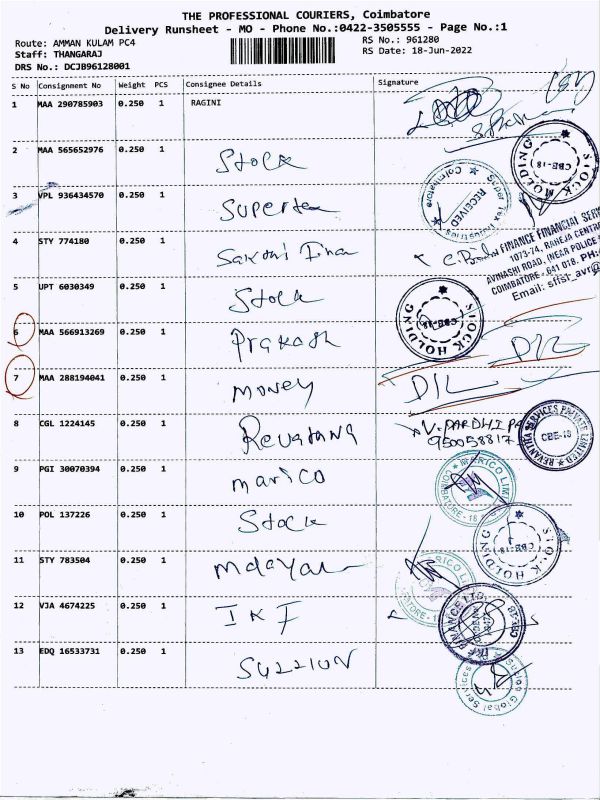 THE PROFESSIONAL COURIERS, Coimbatore
Delivery Runsheet - MO - Phone No.:0422-3505555 - Page No.:1
Route: AMMAN KULAM PC4 RS No.: 961280
Staff: THANGARAJ RS Date: 18-Jun-2022
DRS No.: DCJB96128001
S No Consignment No Weight PCS Consignee Details Signature
1 MAA 290785903 0.250 1 RAGINI
2 MAA 565652976 0.250 1 Stock
STOCK HOLDING CBE-18
3 VPL 936434570 0.250 1 Supertex
Coimbatore RECEIVED
4 STY 774180 0.250 1 Finan
FINANCE FINANCIAL SERV
1073-74, RAHEJA CENTR
AVINASHI ROAD, (NEAR POLICE
COIMBATORE - 641 018. PH:
Email: sffst_avr@
5 UPT 6030349 0.250 1 Stock
STOCK HOLDING CBE-18
6 MAA 566913269 0.250 1 Prakash
7 MAA 288194041 0.250 1 Money
8 CGL 1224145 0.250 1 Revathna
V. PARDHI PA
950058817
REVANTHA SERVICES PRIVATE LIMITED CBE-18
9 PGI 30070394 0.250 1 Marico
MARICO LIM
10 POL 137226 0.250 1 Stock
STOCK HOLDING CBE-18
11 STY 783504 0.250 1
MARICO LI
12 VJA 4674225 0.250 1 IKF
IKF FINANCE LTD
13 EDQ 16533731 0.250 1 SUZZLON
Suzlon Global Services